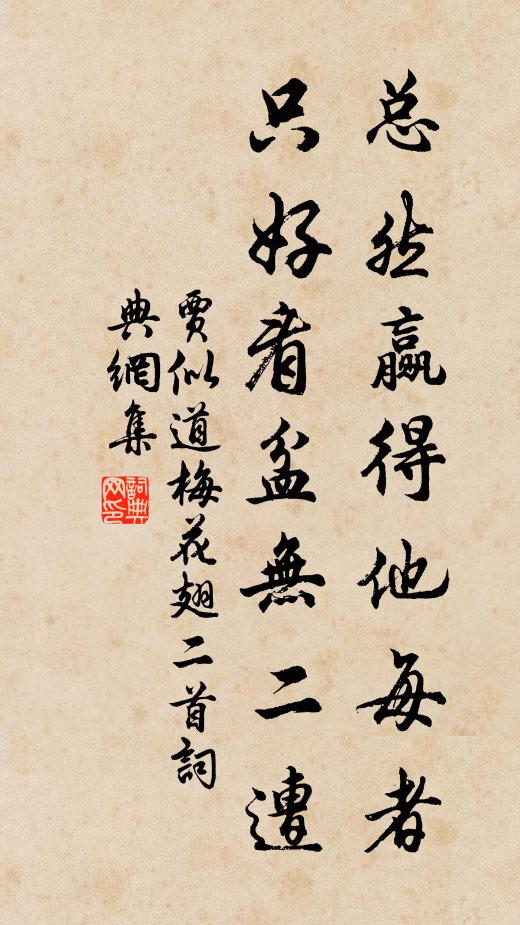 总然贏得他每者
只好看盆無二遭
賈似道梅花翅二首詞
典網集
詞典网印